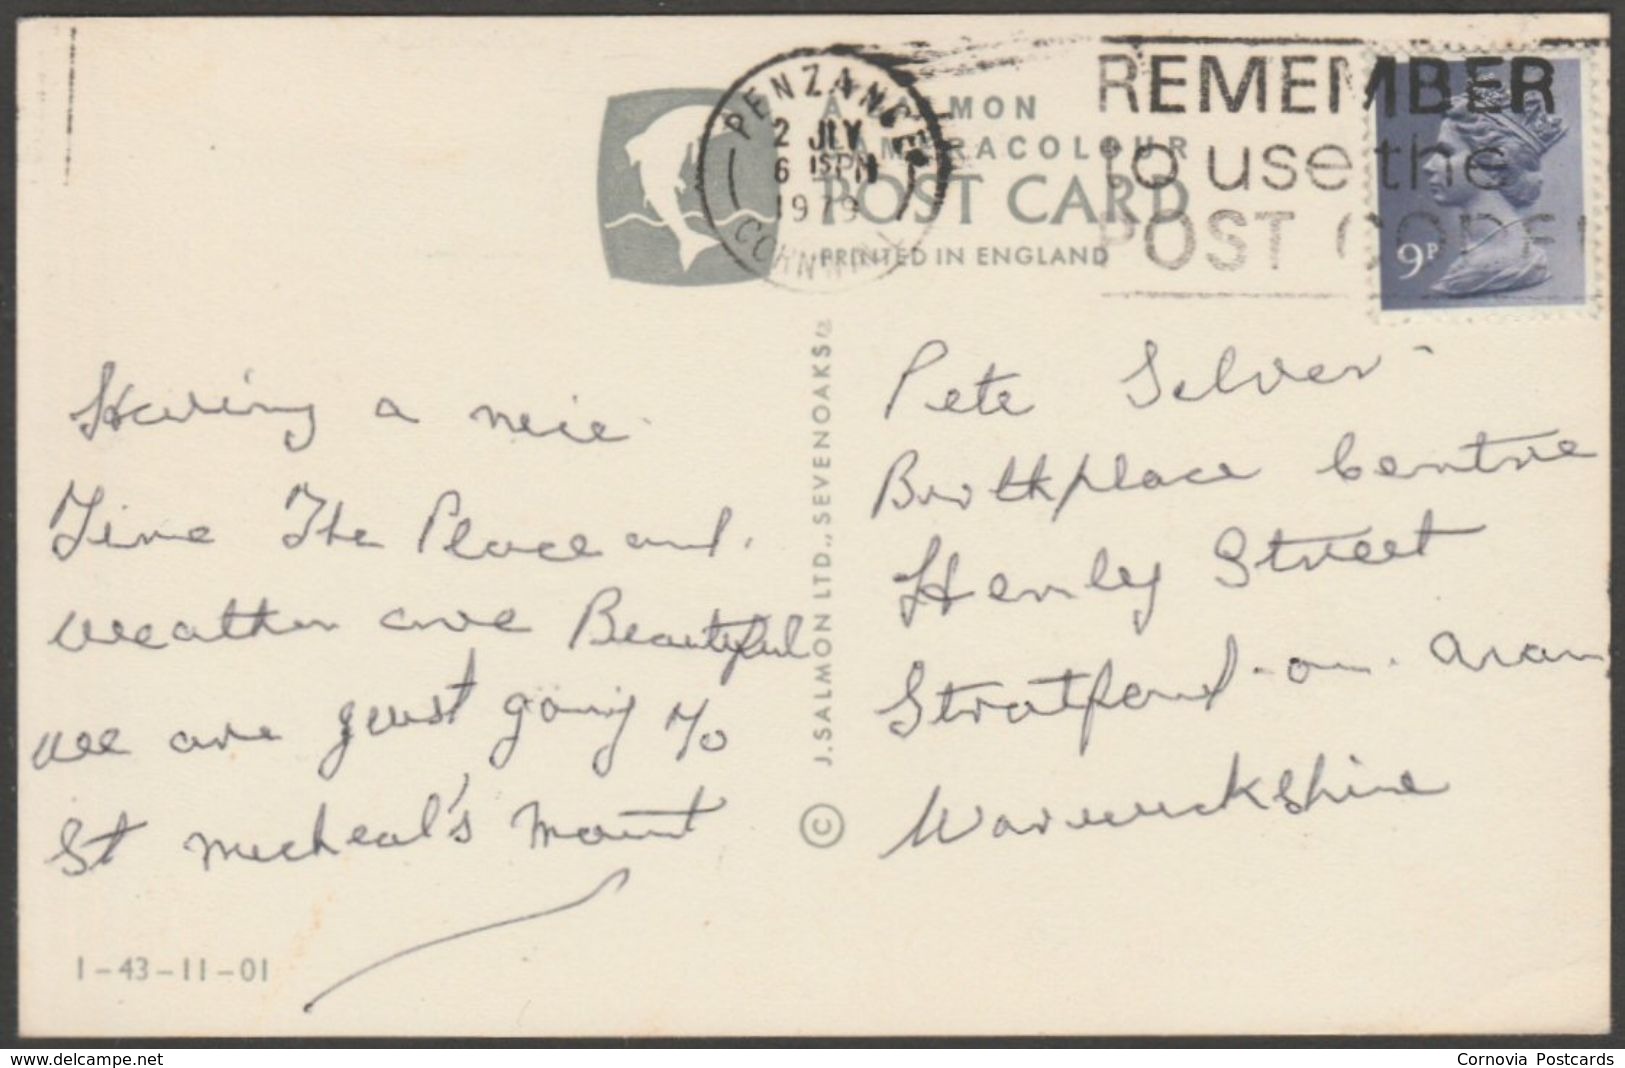 PENZANCE
2 JLY
6 15PM
1979
CORNWALL
REMEMBER
to use the
POST CODE
A SALMON
CAMERACOLOUR
POST CARD
PRINTED IN ENGLAND
9P
Having a nice
Time The Place and
weather are Beautiful
we are just going To
St Micheal's Mount
1-43-11-01
J. SALMON LTD., SEVENOAKS
©
Pete Silver
Birthplace Centre
Henly Street
Stratford-on-Avon
Warwickshire
www.delcampe.net
Cornovia Postcards